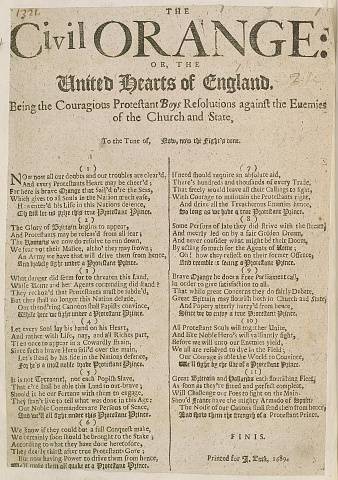 1321.
THE
Civil ORANGE:
OR, THE
United Hearts of England.
Being the Couragious Protestant Boys Resolutions against the Enemies
of the Church and State,
To the Tune of, Now, now the Fight's done.
(1)
NOw now all our doubts and our troubles are clear'd,
And every Protestants Heart may be cheer'd;
For here is brave Orange that sail'd o're the Seas,
Which gives to all Souls in the Nation much ease,
in the Nations defence,
true Protestant Prince.
(2)
The Glory of Britain begins to appear,
And Protestants may be releas'd from all fear:
The we do resolve to run down,
We fear not their Malice, altho' they may frown;
An Army we have that will drive them from hence,
And under a Protestant Prince.
(3)
What danger did seem for to threaten this Land,
While Rome and her Agents contending did stand?
They reckon'd that Protestants must be
But they shall no longer this Nation
Our shall Papists convince,
While we fight under a Protestant Prince.
(4)
Let every Soul lay his hand on his Heart,
And rather with Life, nay, and all Riches part,
Then once to appear in a Cowardly strain,
Since such a brave Hero sail'd over the main,
Let's stand by his side in the Nations defence,
For he's a most noble Protestant Prince.
(5)
It is not nor each Popish Slave,
That e're shall be able this Land to out-brave;
Should be our Fortune with them to engage,
They soon'l live to tell what was done in this Age;
Our Noble Commanders are Persons of Sence,
And will fight under this Protestant Prince.
(6)
We know if they could but a full Conquest make,
We certainly soon should be brought to the Stake;
According to what they have done heretofore,
They thirst after true Protestants Gore;
But now having Power to drive them from hence,
make them all quake at a Protestant Prince.
(7)
If need should require an absolute aid,
There's hundreds and thousands of every Trade,
That freely would leave all their Callings to fight,
With Courage to maintain the Protestants right,
And drive all the Treacherous Enemies hence,
So long as we have a true Protestant Prince.
(8)
Some Persons of late they did strive with the stream,
And merrily led on by a fair Golden Dream,
And never consider what might be their Doom,
By acting so much for the Agents of Rome;
Oh! how they reflect on their former Offence,
And tremble at a Protestant Prince.
(9)
Brave Orange he doth a Free Parliament call,
In order to give satisfaction to all.
That while great Concerns they do fairly Debate,
Great Britain may flourish both in Church and State;
And Popery utterly hurry'd from hence,
Since we do enjoy a true Protestant Prince.
(10)
All Protestant Souls will together Unite,
And like Noble Hero's will valiantly fight,
Before we will unto our Enemies yield,
We all are resolved to dye in the Field;
Our Courage is able the World to Convince,
We'll fight by the side of a Protestant Prince.
(11)
Great Britain and Hollands each flourishing Fleet,
As soon as they're fitted and perfect compleat,
Will Challenge our Foes to fight on the Main,
Shou'd France have the mighty Armado of Spain;
The Noise of our Canons shall send them from hence,
And show them the strength of a Protestant Prince.
FINIS.
Printed for J. 1689.